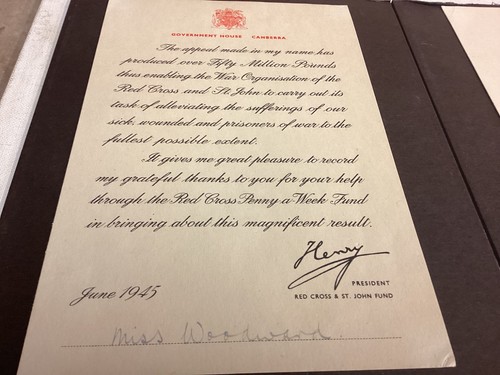 GOVERNMENT HOUSE CANBERRA
The appeal made in my name has
produced over Fifty Million Pounds
thus enabling the War Organisation of the
Red Cross and St. John to carry out its
task of alleviating the sufferings of our
sick, wounded and prisoners of war to the
fullest possible extent.
It gives me great pleasure to record
my grateful thanks to you for your help
through the Red Cross Penny a Week Fund
in bringing about this magnificent result.
Henry
PRESIDENT
RED CROSS & ST. JOHN FUND
June 1945
Miss Woodward.